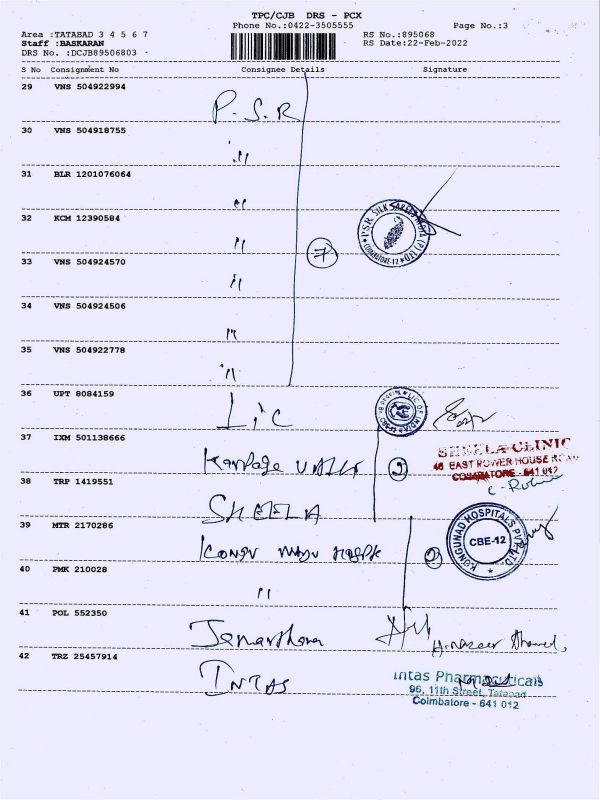 TPC/CJB DRS - PCX
Phone No.:0422-3505555
Page No.:3
Area :TATABAD 3 4 5 6 7
Staff :BASKARAN
DRS No. :DCJB89506803
RS No.:895068
RS Date:22-Feb-2022
S No Consignment No Consignee Details Signature
29 VNS 504922994
P.S.R
30 VNS 504918755
"
31 BLR 1201076064
"
32 KCM 12390584
"
7
PSR SILK SAREES INDIA (P) LTD
COIMBATORE-12
33 VNS 504924570
"
34 VNS 504924506
"
35 VNS 504922778
"
36 UPT 8084159
LIC
LIC OF INDIA
37 IXM 501138666
2
SHEELA CLINIC
46 EAST POWER HOUSE ROAD
COIMBATORE - 641 012
38 TRP 1419551
SHEELA
39 MTR 2170286
KONGUNAD HOSPITALS PVT LTD
CBE-12
40 PMK 210028
"
41 POL 552350
42 TRZ 25457914
INTAS
Intas Pharmaceuticals
96, 11th Street, Tatabad
Coimbatore - 641 012